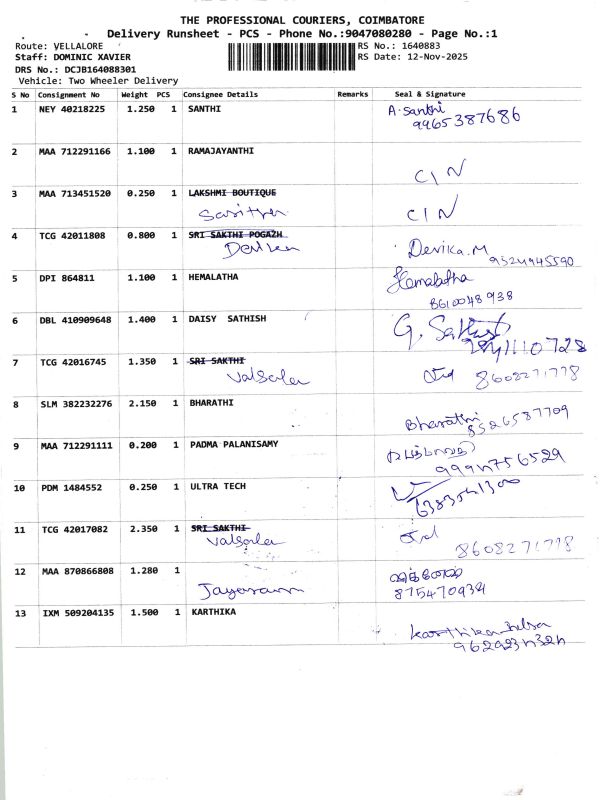 THE PROFESSIONAL COURIERS, COIMBATORE
Delivery Runsheet - PCS - Phone No.:9047080280 - Page No.:1
Route: VELLALORE RS No.: 1640883
Staff: DOMINIC XAVIER RS Date: 12-Nov-2025
DRS No.: DCJB164088301
Vehicle: Two Wheeler Delivery
S No Consignment No Weight PCS Consignee Details Remarks Seal & Signature
1 NEY 40218225 1.250 1 SANTHI A. Santhi
9965387686
2 MAA 712291166 1.100 1 RAMAJAYANTHI
C/N
3 MAA 713451520 0.250 1 LAKSHMI BOUTIQUE
C/N
4 TCG 42011808 0.800 1 SRI SAKTHI POGAZH
Devika.M
5 DPI 864811 1.100 1 HEMALATHA Hemalatha
6 DBL 410909648 1.400 1 DAISY SATHISH
7 TCG 42016745 1.350 1 SRI SAKTHI
Valsala 8608271778
8 SLM 382232276 2.150 1 BHARATHI
Bharathi
8526587709
9 MAA 712291111 0.200 1 PADMA PALANISAMY
10 PDM 1484552 0.250 1 ULTRA TECH
11 TCG 42017082 2.350 1 SRI SAKTHI
Valsala 8608271778
12 MAA 870866808 1.280 1
Jayaram
13 IXM 509204135 1.500 1 KARTHIKA
Karthika